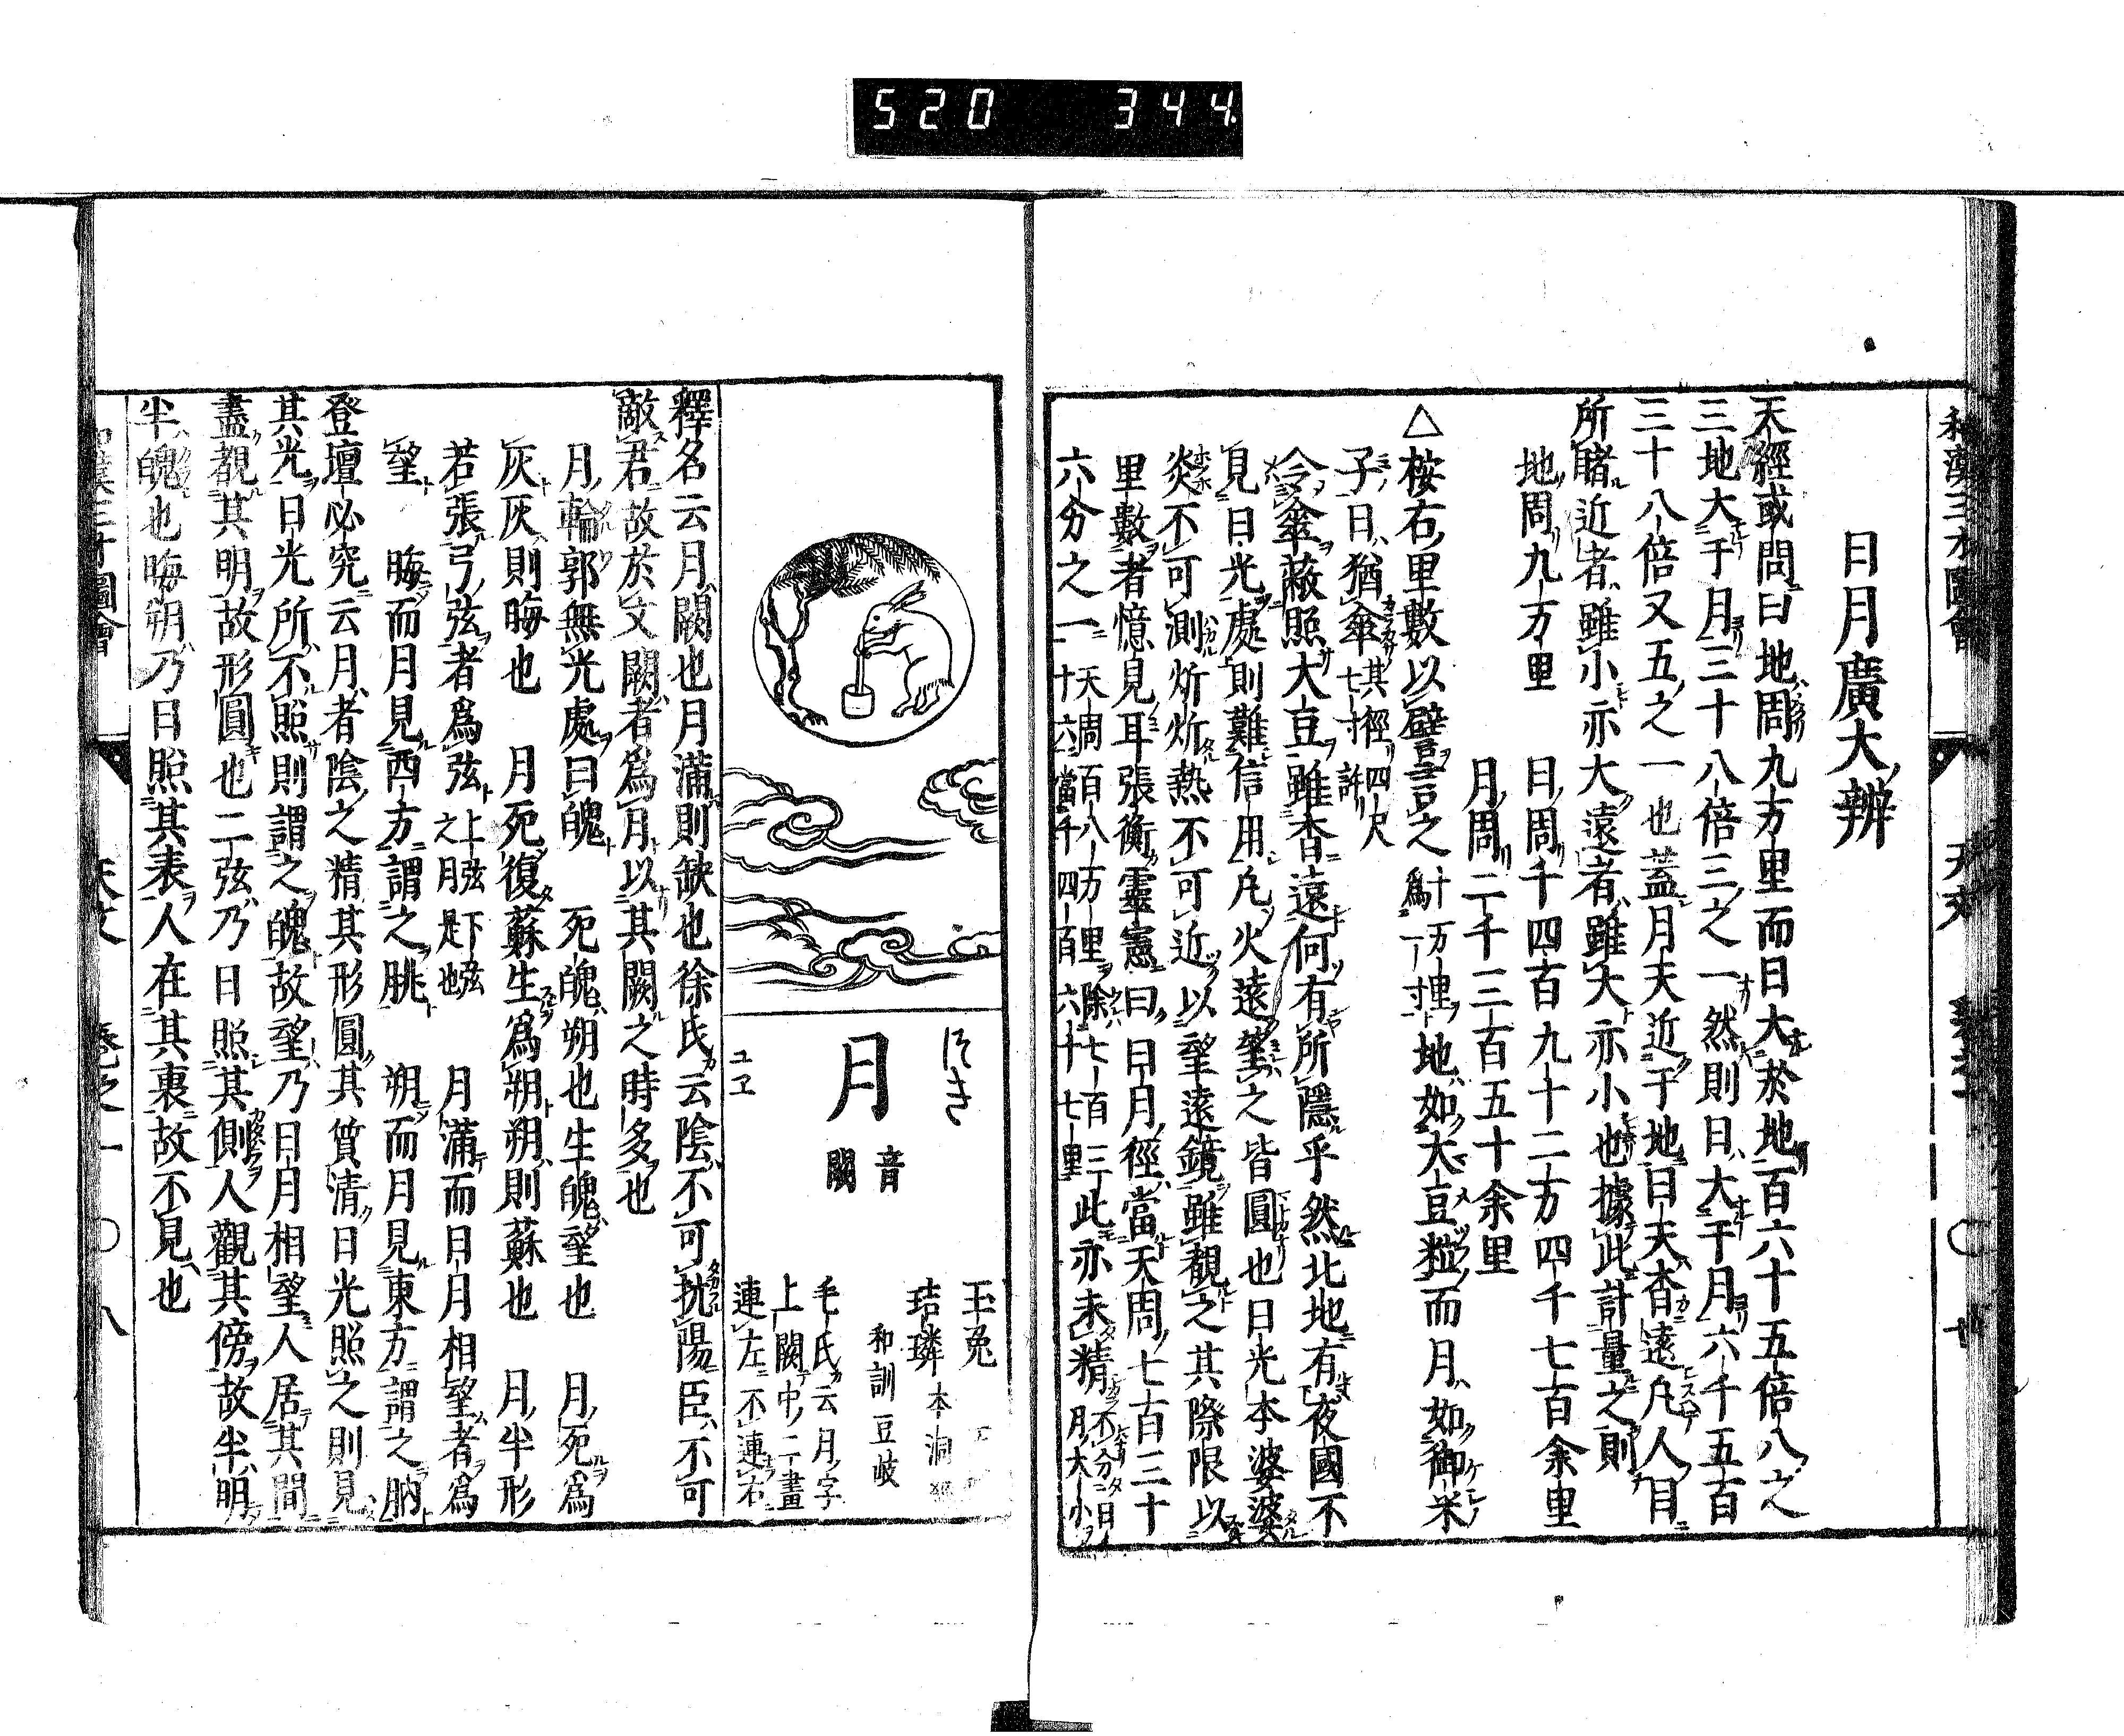 520 344.
和漢三才圖會 天文 卷之一 ○ 七
日月廣大辨
天經或問曰地周九万里而日大於地一百六十五倍八之
三地大于月三十八倍三之一然則日大于月六千五百
三十八倍又五之一也蓋月天近于地日天杳遠凡人目
所睹近者雖小亦大遠者雖大亦小也據此計量之則
地周九万里 日周千四百九十二万四千七百余里
月周二千三百五十余里
△桉右里數以譬言之十万里爲一寸地如大豆粒而月如御米
子日猶傘其徑四尺七寸許
今傘蔽照大豆雖杳遠何有所隱乎然北地有夜國不
見日光處則難信用凡火遠望之皆圓也日光本婆婆
炎不可測炘炘熱不可近以望遠鏡雖覩之其際限以
里數者憶見耳張衡靈憲曰日月徑當天周七百三十
六分之一天周百八万里除七百三十六當千四百六十七里此亦未精不分日月大小
つき
月
音闕
ユヱ
玉兎
桔璘
和訓豆岐
毛氏云月字
上闕中二畫
連左不連右
釋名云月闕也月滿則缺也徐氏云陰不可抗陽臣不可
敵君故於文闕者爲月以其闕之時多也
月輪郭無光處曰魄 死魄朔也生魄望也 月死爲
灰灰則晦也 月死復蘇生爲朔朔則蘇也 月半形
若張弓弦者爲弦上弦下弦之月是也 月滿而日月相望者爲
望 晦而月見西方謂之朓 朔而月見東方謂之朒
登壇必究云月者陰之精其形圓其質清日光照之則見
其光日光所不照則謂之魄故望乃日月相望人居其間
盡覩其明故形圓也二弦乃日照其側人觀其傍故半明
半魄也晦朔乃日照其表人在其裏故不見也
和漢三才圖會 天文 卷之一 ○ 八